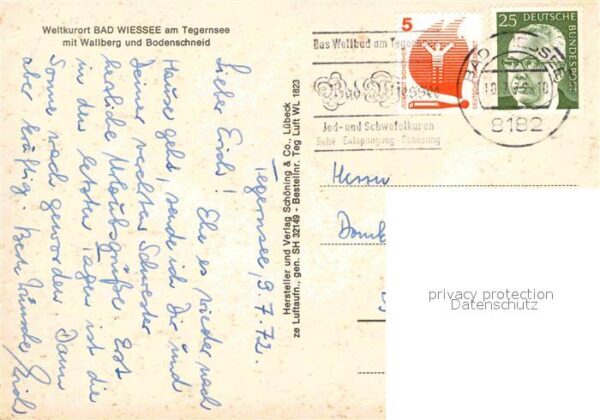 Weltkurort BAD WIESSEE am Tegernsee
mit Wallberg und Bodenschneid
Tegernsee, 9.7.72.
Lieber Erich! Ehe es wieder nach
Hause geht, sende ich Dir und
Deiner werten Schwester
herzliche Urlaubsgrüße. Erst
in den letzten Tagen ist die
Sonne wach geworden. Dann
aber kräftig.
Hersteller und Verlag Schöning & Co., Lübeck
ze Luftaufn., gen. SH 32149 - Bestellnr. Teg Luft WL 1823
5
25
DEUTSCHE
BUNDESPOST
Das Weltbad am Tegernsee
Bad Wiessee
Jod- und Schwefelkuren
Ruhe - Entspannung - Genesung
BAD WIESSEE
8182
Herrn
privacy protection
Datenschutz